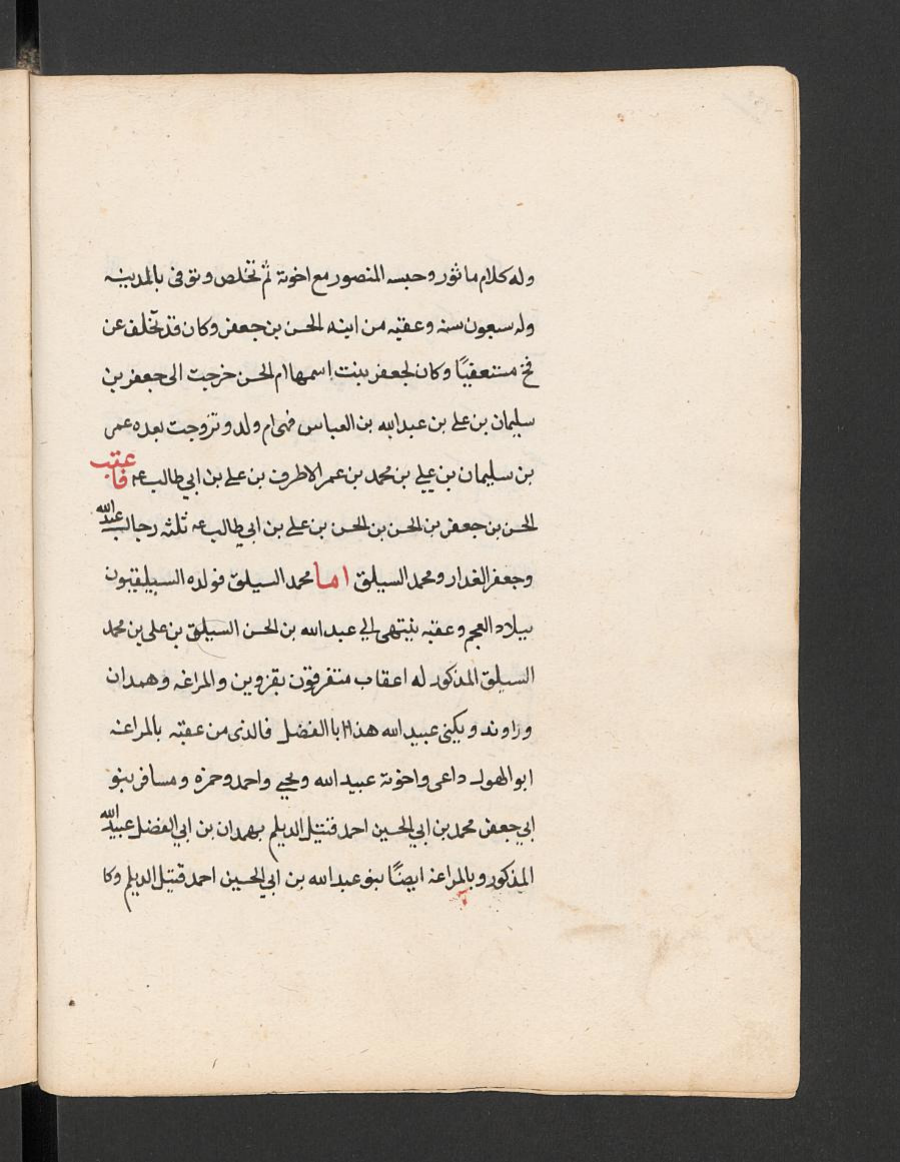 وله كلام ماثور وحبسه المنصور مع اخوته ثم تخلص وتوفى بالمدينه
وله سبعون سنه وعقبه من ابنه الحسن بن جعفر وكان قد تخلف عن
فخ مستعفيًا وكان لجعفر بنت اسمها ام الحسن خرجت الى جعفر بن
سليمان بن على بن عبدالله بن العباس فهى ام ولد وتزوجت بعده عمر
بن سليمان بن على بن محمد بن عمر الاطرف بن على بن ابي طالب عه فاعقب
الحسن بن جعفر بن الحسن بن الحسن بن على بن ابي طالب عه ثلثه رجال عبدالله
وجعفر الغدار ومحمد السيلق اما محمد السيلق فولده السيلقيون
ببلاد العجم وعقبه ينتهى الي عبدالله بن الحسن السيلق بن على بن محمد
السيلق المذكور له اعقاب متفرقون بقزوين والمراغه وهمدان
وراوند ويكنى عبيدالله هذا ابا الفضل فالذى من عقبه بالمراغه
ابوالهول داعى واخوته عبيدالله ويحيى واحمد وحمزه ومسافر بنو
ابي جعفر محمد بن ابي الحسين احمد قتيل الديلم بهمدان بن ابي الفضل عبيدالله
المذكور وبالمراغه ايضًا بنو عبدالله بن ابي الحسين احمد قتيل الديلم وكا